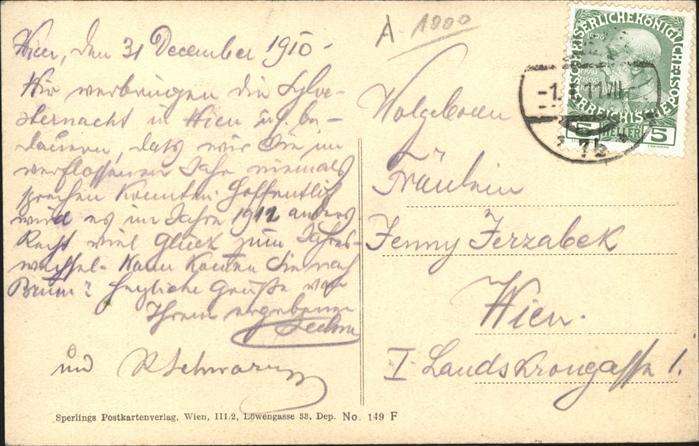 A 1900
Wien, den 31 December 1910 -
Wir verbringen die Sylve-
sternacht in Wien u. be-
dauern, dass wir Sie im
verflossenen Jahr niemals
sprechen konnten. Hoffentlich
wird es im Jahre 1912 anders
Recht viel Glück zum Jahres-
wechsel. Wann Sie nach
Brünn? Herzliche Grüße von
Ihrem ergebenen
und R Schwarz
KAISERLICHEKÖNIGLICHE
ÖSTERREICHISCHE POST
5 HELLER 5
Wolgeboren
Fräulein
Jenny Jerzabek
Wien.
I Landskrongasse 1.
Sperlings Postkartenverlag, Wien, III.2, Löwengasse 38, Dep. No. 149 F